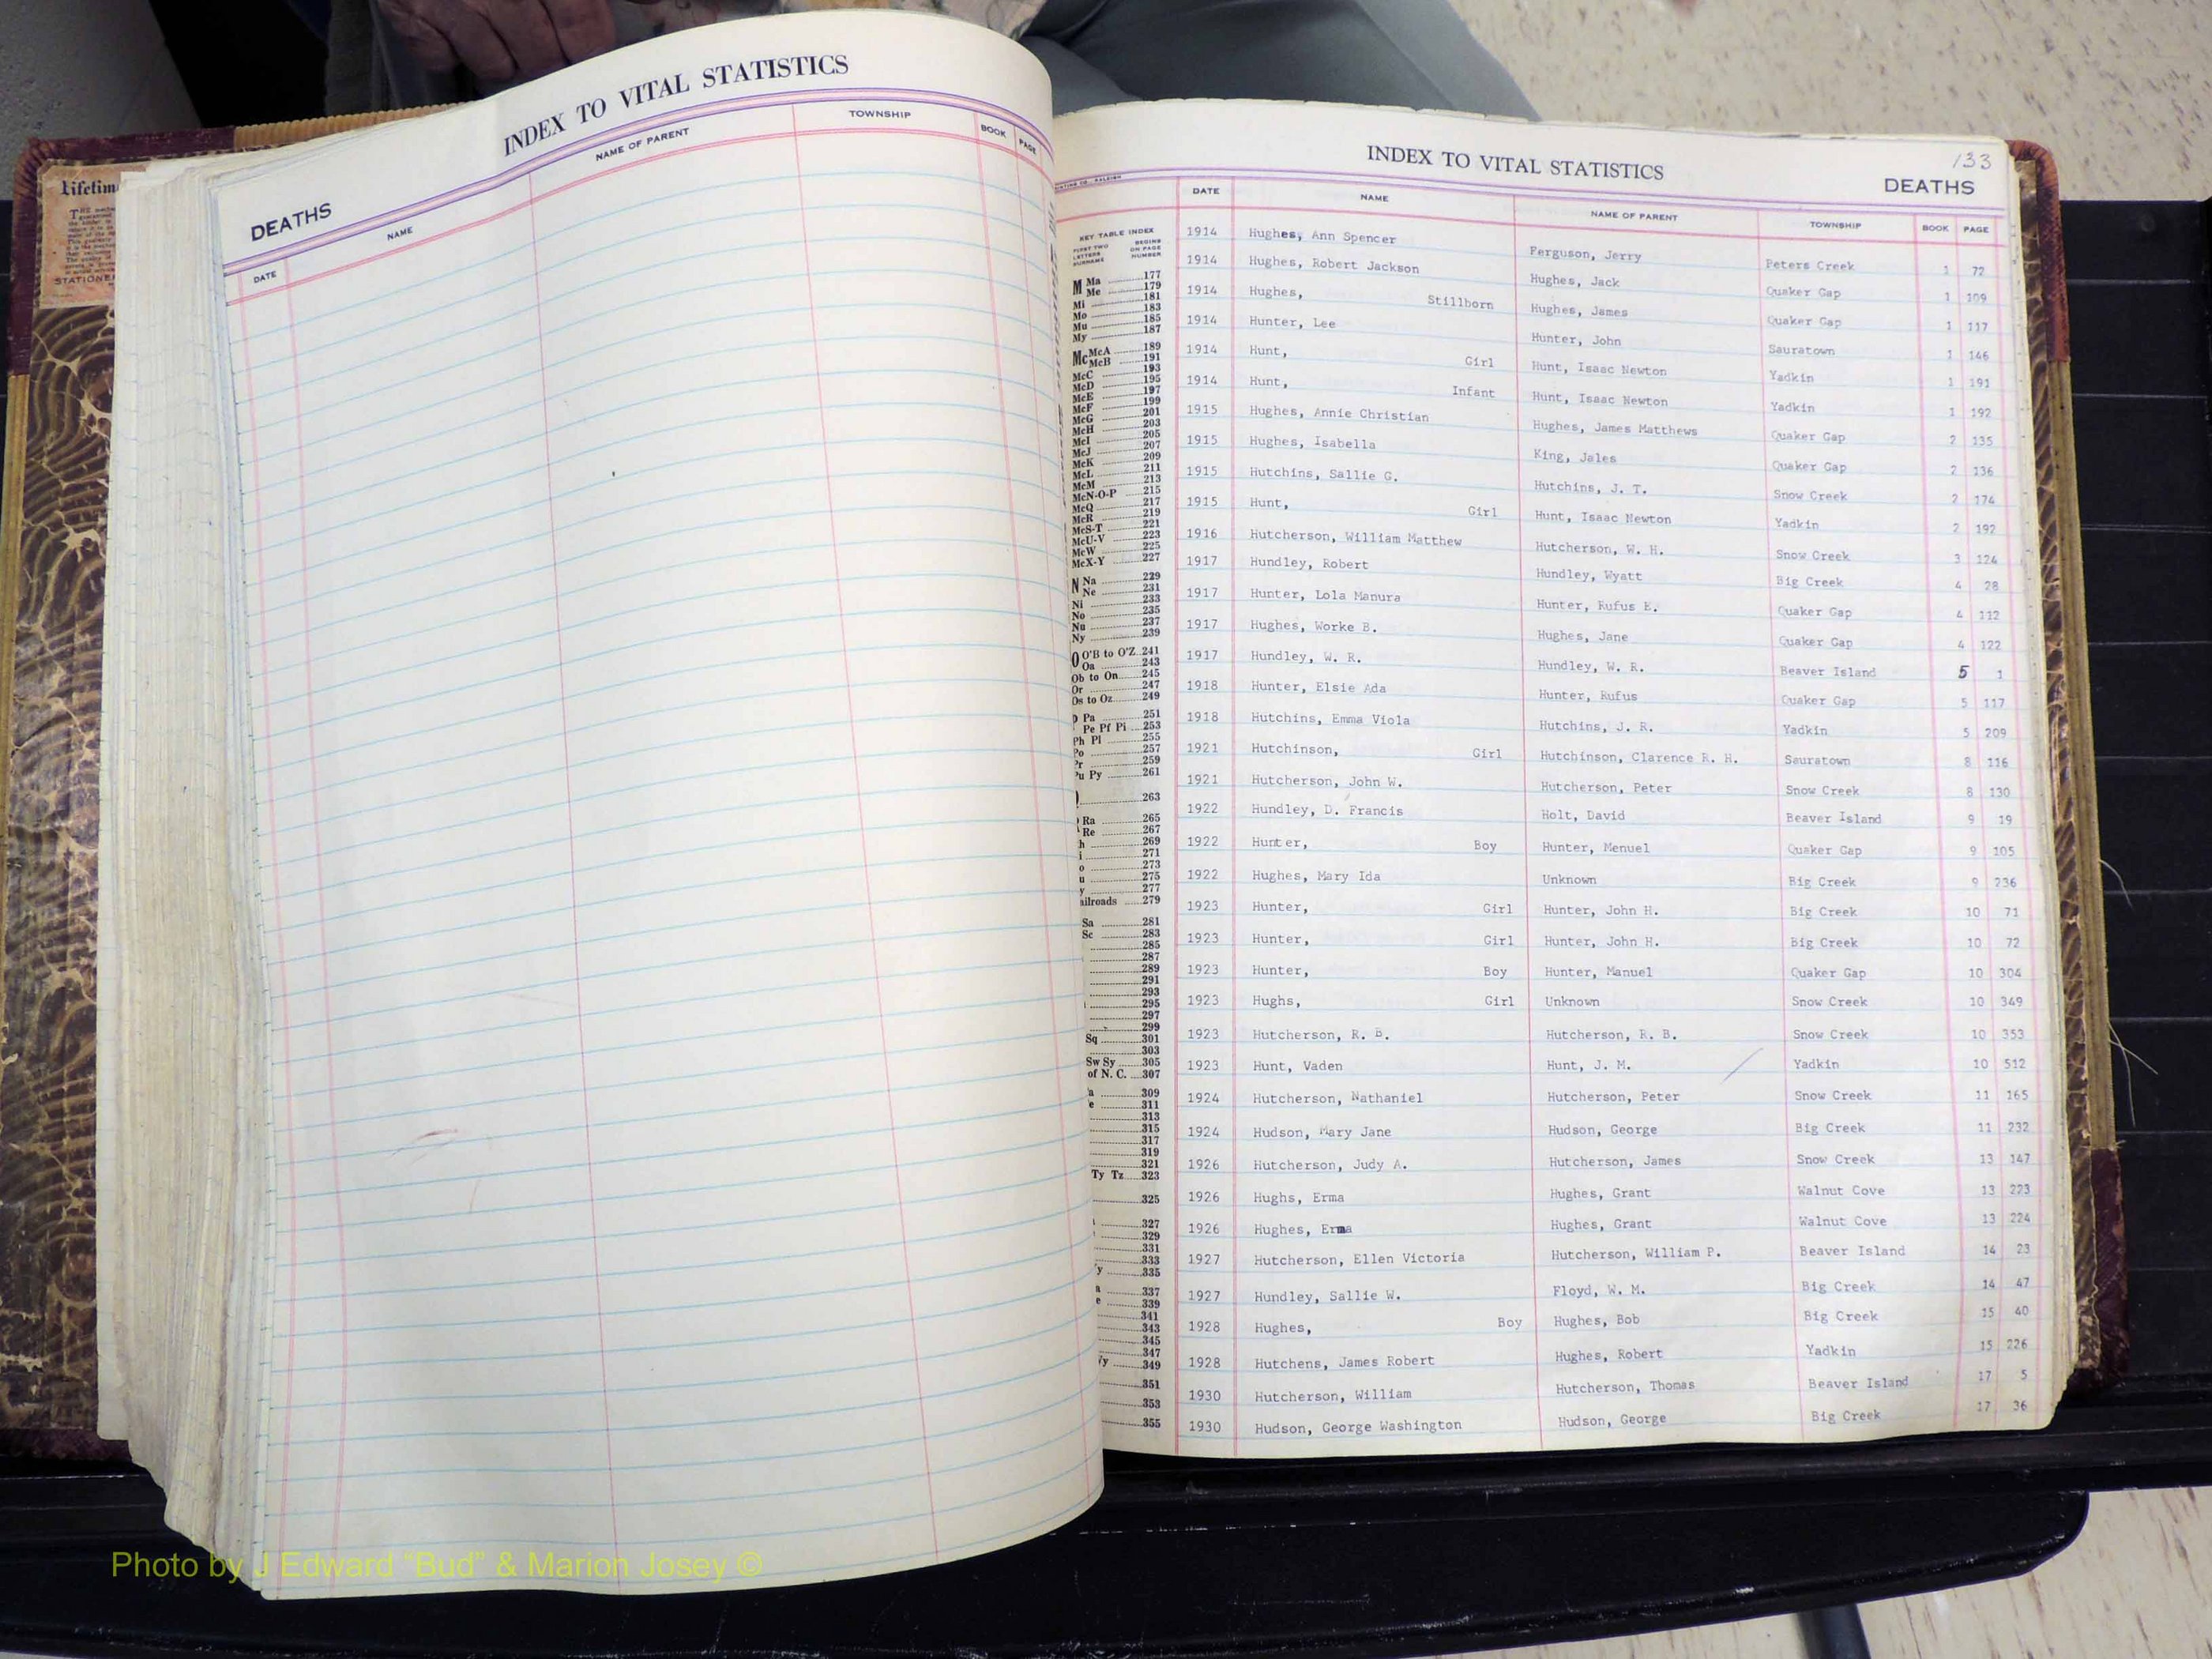 Lifetim
STATIONE
INDEX TO VITAL STATISTICS
DEATHS
DATE NAME NAME OF PARENT TOWNSHIP BOOK PAGE
133
INDEX TO VITAL STATISTICS
DEATHS
DATE NAME NAME OF PARENT TOWNSHIP BOOK PAGE
KEY TABLE INDEX
FIRST TWO LETTERS SURNAME BEGINS ON PAGE NUMBER
M Ma 177
Me 179
Mi 181
Mo 183
Mu 185
My 187
Mc McA 189
McB 191
McC 193
McD 195
McE 197
McF 199
McG 201
McH 203
McI 205
McJ 207
McK 209
McL 211
McM 213
McN-O-P 215
McQ 217
McR 219
McS-T 221
McU-V 223
McW 225
McX-Y 227
N Na 229
Ne 231
Ni 233
No 235
Nu 237
Ny 239
O O'B to O'Z 241
Oa 243
Ob to On 245
Or 247
Os to Oz 249
Pa 251
Pe Pf Pi 253
Ph Pl 255
Po 257
Pr 259
Pu Py 261
263
Ra 265
Re 267
h 269
i 271
o 273
u 275
y 277
ailroads 279
Sa 281
Sc 283
285
287
289
291
293
295
297
299
Sq 301
303
Sw Sy 305
of N. C. 307
a 309
e 311
313
315
317
319
321
Ty Tz 323
325
327
329
331
333
y 335
a 337
e 339
341
343
345
347
y 349
351
353
355
1914 Hughes, Ann Spencer Ferguson, Jerry Peters Creek 1 72
1914 Hughes, Robert Jackson Hughes, Jack Quaker Gap 1 109
1914 Hughes, Stillborn Hughes, James Quaker Gap 1 117
1914 Hunter, Lee Hunter, John Sauratown 1 146
1914 Hunt, Girl Hunt, Isaac Newton Yadkin 1 191
1914 Hunt, Infant Hunt, Isaac Newton Yadkin 1 192
1915 Hughes, Annie Christian Hughes, James Matthews Quaker Gap 2 135
1915 Hughes, Isabella King, Jales Quaker Gap 2 136
1915 Hutchins, Sallie G. Hutchins, J. T. Snow Creek 2 174
1915 Hunt, Girl Hunt, Isaac Newton Yadkin 2 192
1916 Hutcherson, William Matthew Hutcherson, W. H. Snow Creek 3 124
1917 Hundley, Robert Hundley, Wyatt Big Creek 4 28
1917 Hunter, Lola Manura Hunter, Rufus E. Quaker Gap 4 112
1917 Hughes, Worke B. Hughes, Jane Quaker Gap 4 122
1917 Hundley, W. R. Hundley, W. R. Beaver Island 5 1
1918 Hunter, Elsie Ada Hunter, Rufus Quaker Gap 5 117
1918 Hutchins, Emma Viola Hutchins, J. R. Yadkin 5 209
1921 Hutchinson, Girl Hutchinson, Clarence R. H. Sauratown 8 116
1921 Hutcherson, John W. Hutcherson, Peter Snow Creek 8 130
1922 Hundley, D. Francis Holt, David Beaver Island 9 19
1922 Hunter, Boy Hunter, Menuel Quaker Gap 9 105
1922 Hughes, Mary Ida Unknown Big Creek 9 236
1923 Hunter, Girl Hunter, John H. Big Creek 10 71
1923 Hunter, Girl Hunter, John H. Big Creek 10 72
1923 Hunter, Boy Hunter, Manuel Quaker Gap 10 304
1923 Hughs, Girl Unknown Snow Creek 10 349
1923 Hutcherson, R. B. Hutcherson, R. B. Snow Creek 10 353
1923 Hunt, Vaden Hunt, J. M. Yadkin 10 512
1924 Hutcherson, Nathaniel Hutcherson, Peter Snow Creek 11 165
1924 Hudson, Mary Jane Hudson, George Big Creek 11 232
1926 Hutcherson, Judy A. Hutcherson, James Snow Creek 13 147
1926 Hughs, Erma Hughes, Grant Walnut Cove 13 223
1926 Hughes, Erma Hughes, Grant Walnut Cove 13 224
1927 Hutcherson, Ellen Victoria Hutcherson, William P. Beaver Island 14 23
1927 Hundley, Sallie W. Floyd, W. M. Big Creek 14 47
1928 Hughes, Boy Hughes, Bob Big Creek 15 40
1928 Hutchens, James Robert Hughes, Robert Yadkin 15 226
1930 Hutcherson, William Hutcherson, Thomas Beaver Island 17 5
1930 Hudson, George Washington Hudson, George Big Creek 17 36
Photo by J Edward "Bud" & Marion Josey ©